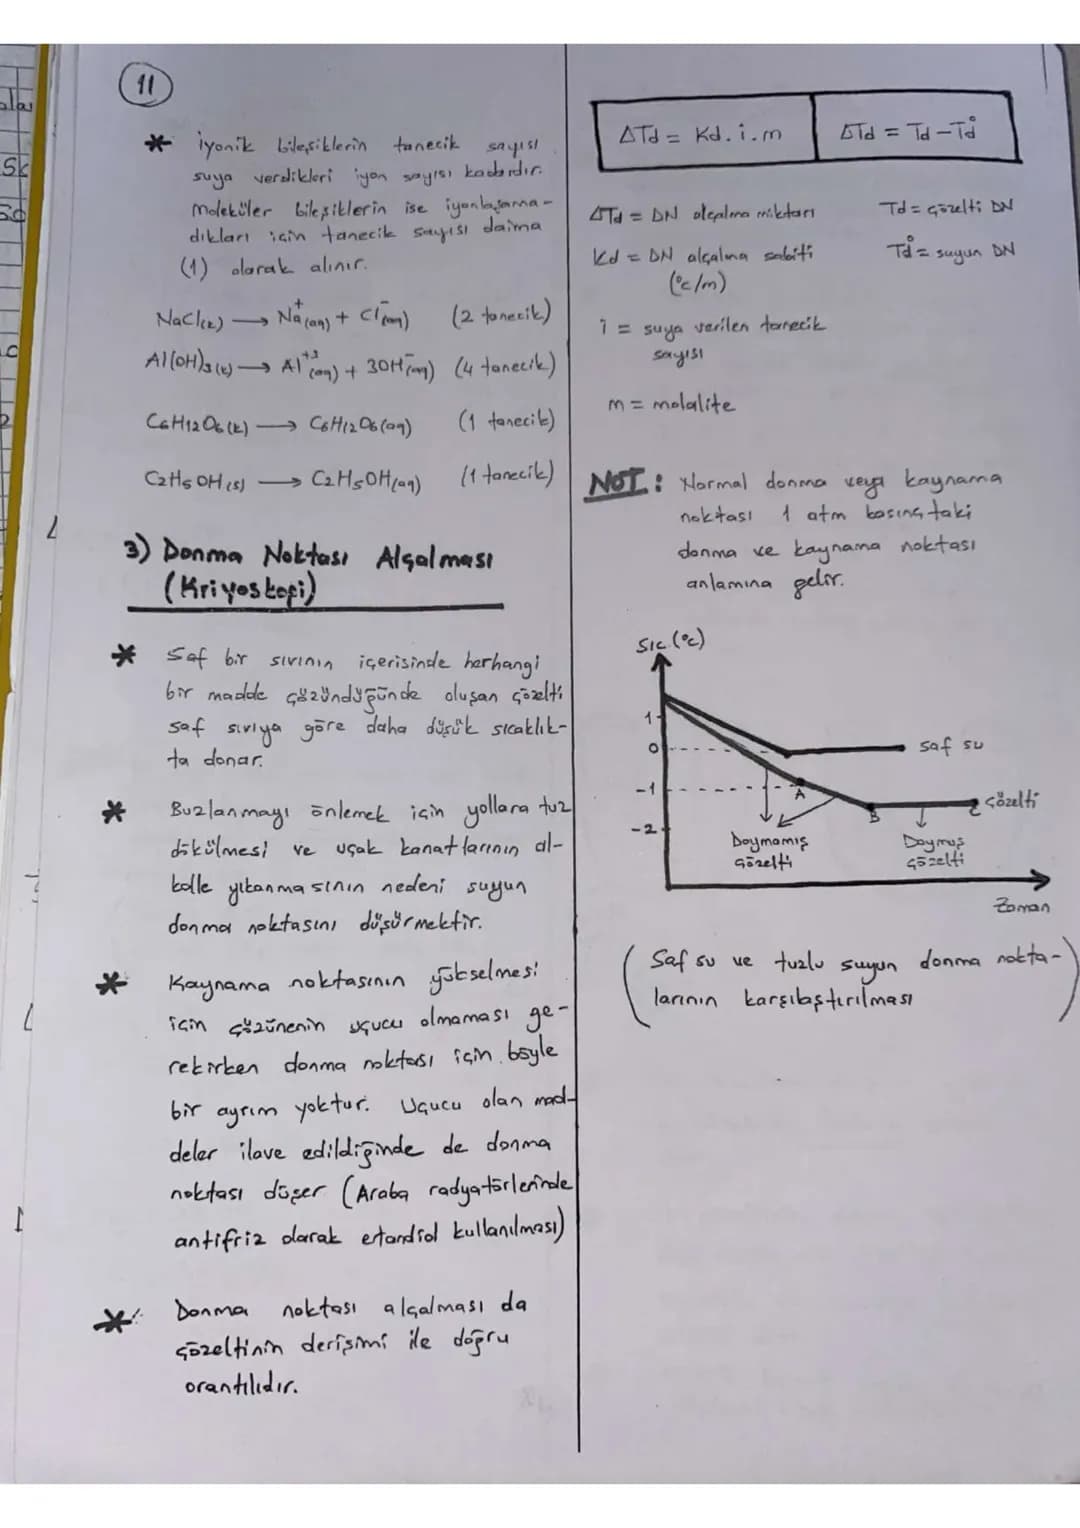 11
* İyonik bileşiklerin tanecik sayısı
suya verdikleri iyon sayısı kadardır.
Moleküler bileşiklerin ise iyonlaşama-
dıkları için tanecik sayısı daima
(1) olarak alınır.
NaCl(k) → Na+(aq) + Cl-(aq) (2 tanecik)
Al(OH)3(k) → Al+3(aq) + 3OH-(aq) (4 tanecik)
C6H12O6(k) → C6H12O6(aq) (1 tanecik)
C2H5OH(s) → C2H5OH(aq) (1 tanecik)
3) Donma Noktası Alçalması
(Kriyoskopi)
* Saf bir sıvının içerisinde herhangi
bir madde çözündüğünde oluşan çözelti
saf sıvıya göre daha düşük sıcaklık-
ta donar.
* Buzlanmayı önlemek için yollara tuz
dökülmesi ve uçak kanatlarının al-
kolle yıkanmasının nedeni suyun
donma noktasını düşürmektir.
* Kaynama noktasının yükselmesi
için çözünenin uçucu olmaması ge-
rekirken donma noktası için böyle
bir ayrım yoktur. Uçucu olan mad-
deler ilave edildiğinde de donma
noktası düşer (Araba radyatörlerinde
antifriz olarak etandiol kullanılması)
* Donma noktası alçalması da
çözeltinin derişimi ile doğru
orantılıdır.
ΔTd = Kd.i.m ΔTd = Td - Td°
ΔTd = DN alçalma miktarı Td = çözelti DN
Kd = DN alçalma sabiti Td° = suyun DN
(°c/m)
i = suya verilen tanecik
sayısı
m = molalite
NOT: Normal donma veya kaynama
noktası 1 atm basınçtaki
donma ve kaynama noktası
anlamına gelir.
Sıc.(°c)
1
0
saf su
-1
A
çözelti
B
-2
Doymamış
çözelti
Doymuş
çözelti
Zaman
(Saf su ve tuzlu suyun donma nokta-
larının karşılaştırılması)